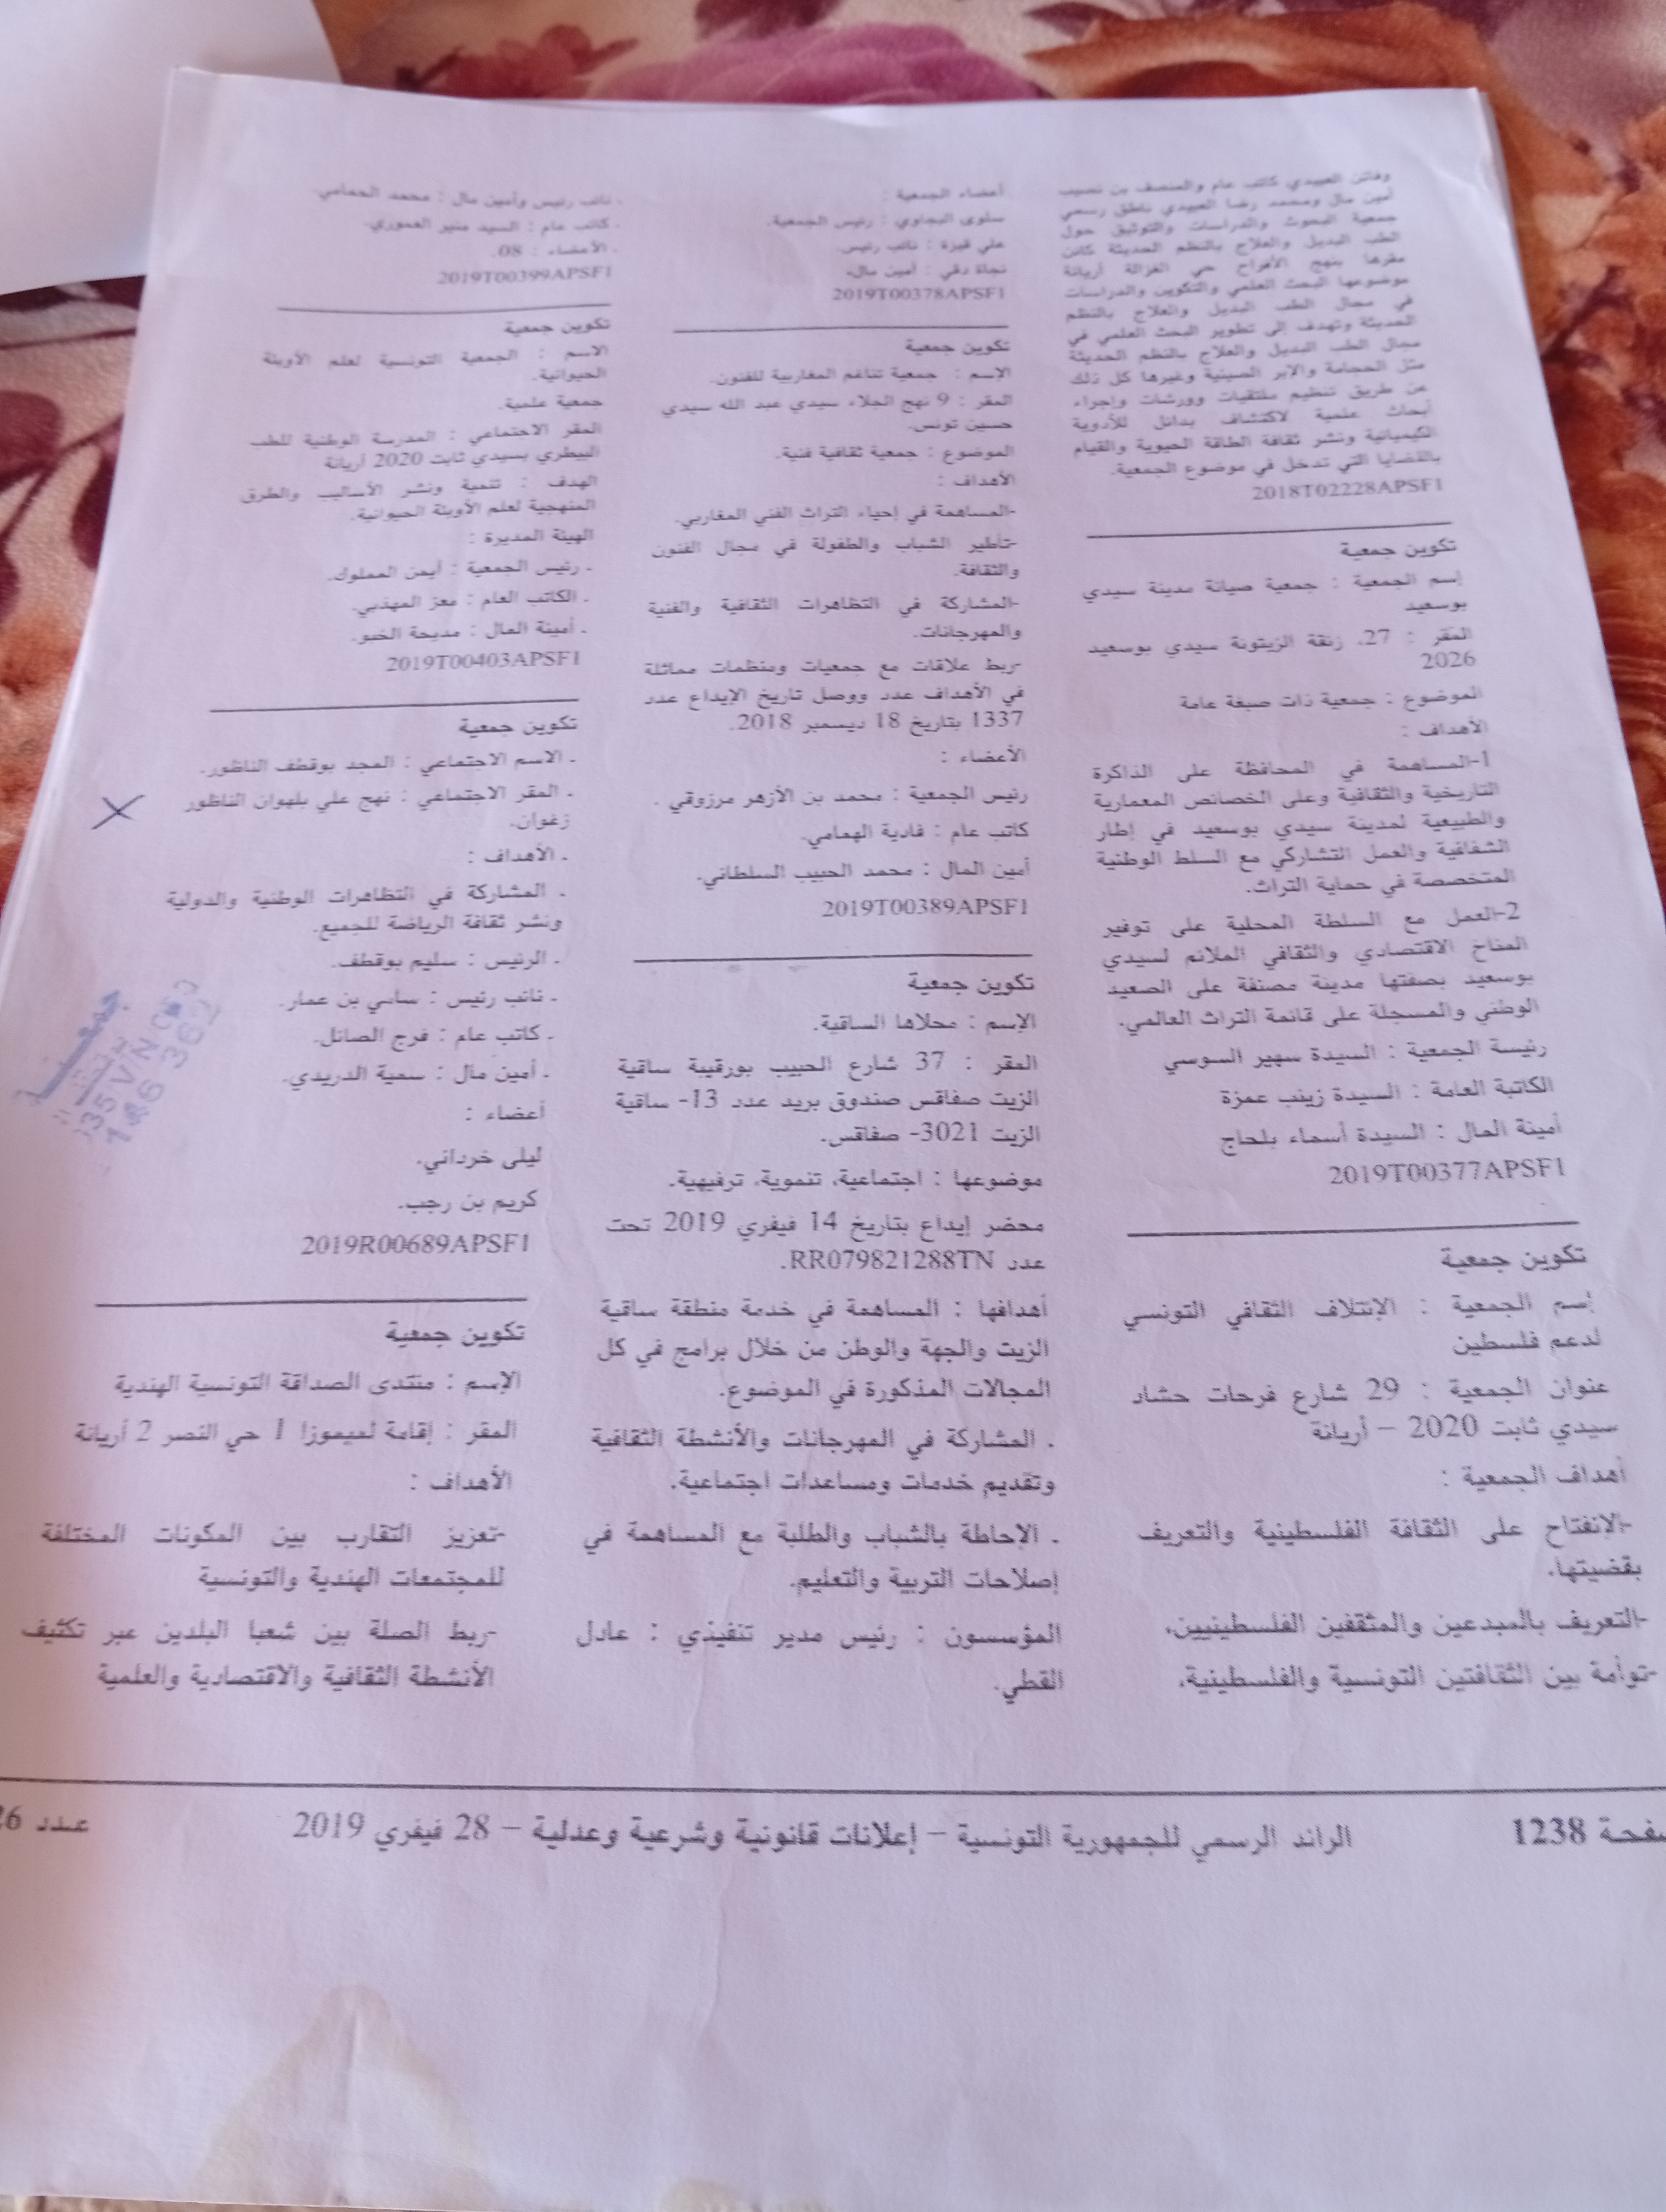 وفاتن العبيدي كاتب عام والمنصف بن نصيب
أمين مال ومحمد رضا العبيدي ناطق رسمي
جمعية البحوث والدراسات والتوثيق حول
الطب البديل والعلاج بالنظم الحديثة كائن
مقرها بنهج الأفراح حي الغزالة أريانة
موضوعها البحث العلمي والتكوين والدراسات
في مجال الطب البديل والعلاج بالنظم
الحديثة وتهدف إلى تطوير البحث العلمي في
مجال الطب البديل والعلاج بالنظم الحديثة
مثل الحجامة والإبر الصينية وغيرها كل ذلك
عن طريق تنظيم ملتقيات وورشات وإجراء
أبحاث علمية لاكتشاف بدائل للأدوية
الكيميائية ونشر ثقافة الطاقة الحيوية والقيام
بالقضايا التي تدخل في موضوع الجمعية.
2018T02228APSF1
تكوين جمعية
إسم الجمعية : جمعية صيانة مدينة سيدي
بوسعيد
المقر : 27، زنقة الزيتونة سيدي بوسعيد
2026
الموضوع : جمعية ذات صبغة عامة
الأهداف :
1-المساهمة في المحافظة على الذاكرة
التاريخية والثقافية وعلى الخصائص المعمارية
والطبيعية لمدينة سيدي بوسعيد في إطار
الشفافية والعمل التشاركي مع السلط الوطنية
المتخصصة في حماية التراث.
2-العمل مع السلطة المحلية على توفير
المناخ الاقتصادي والثقافي الملائم لسيدي
بوسعيد بصفتها مدينة مصنفة على الصعيد
الوطني والمسجلة على قائمة التراث العالمي.
رئيسة الجمعية : السيدة سهير السوسي
الكاتبة العامة : السيدة زينب عمزة
أمينة المال : السيدة أسماء بلحاج
2019T00377APSF1
تكوين جمعية
إسم الجمعية : الإئتلاف الثقافي التونسي
لدعم فلسطين
عنوان الجمعية : 29 شارع فرحات حشاد
سيدي ثابت 2020 – أريانة
أهداف الجمعية :
-الإنفتاح على الثقافة الفلسطينية والتعريف
بقضيتها.
-التعريف بالمبدعين والمثقفين الفلسطينيين،
-توأمة بين الثقافتين التونسية والفلسطينية،
أعضاء الجمعية :
سلوى البجاوي : رئيس الجمعية.
علي قيزة : نائب رئيس.
نجاة دقي : أمين مال.
2019T00378APSF1
تكوين جمعية
الإسم : جمعية تناغم المغاربية للفنون.
المقر : 9 نهج الجلاء سيدي عبد الله سيدي
حسين تونس.
الموضوع : جمعية ثقافية فنية.
الأهداف :
-المساهمة في إحياء التراث الفني المغاربي.
-تأطير الشباب والطفولة في مجال الفنون
والثقافة.
-المشاركة في التظاهرات الثقافية والفنية
والمهرجانات.
-ربط علاقات مع جمعيات ومنظمات مماثلة
في الأهداف عدد ووصل تاريخ الإيداع عدد
1337 بتاريخ 18 ديسمبر 2018.
الأعضاء :
رئيس الجمعية : محمد بن الأزهر مرزوقي .
كاتب عام : فادية الهمامي.
أمين المال : محمد الحبيب السلطاني.
2019T00389APSF1
تكوين جمعية
الإسم : محلاها الساقية.
المقر : 37 شارع الحبيب بورقيبة ساقية
الزيت صفاقس صندوق بريد عدد 13- ساقية
الزيت 3021- صفاقس.
موضوعها : اجتماعية، تنموية، ترفيهية.
محضر إيداع بتاريخ 14 فيفري 2019 تحت
عدد RR079821288TN.
أهدافها : المساهمة في خدمة منطقة ساقية
الزيت والجهة والوطن من خلال برامج في كل
المجالات المذكورة في الموضوع.
. المشاركة في المهرجانات والأنشطة الثقافية
وتقديم خدمات ومساعدات اجتماعية.
. الإحاطة بالشباب والطلبة مع المساهمة في
إصلاحات التربية والتعليم.
المؤسسون : رئيس مدير تنفيذي : عادل
القطي.
. نائب رئيس وأمين مال : محمد الحمامي.
. كاتب عام : السيد منير العموري.
. الأعضاء : 08.
2019T00399APSF1
تكوين جمعية
الاسم : الجمعية التونسية لعلم الأوبئة
الحيوانية.
جمعية علمية.
المقر الاجتماعي : المدرسة الوطنية للطب
البيطري بسيدي ثابت 2020 أريانة
الهدف : تنمية ونشر الأساليب والطرق
المنهجية لعلم الأوبئة الحيوانية.
الهيئة المديرة :
. رئيس الجمعية : أيمن المملوك.
. الكاتب العام : معز المهذبي.
. أمينة المال : مديحة الخبو.
2019T00403APSF1
تكوين جمعية
. الاسم الاجتماعي : المجد بوقطف الناظور.
. المقر الاجتماعي : نهج علي بلهوان الناظور
زغوان.
. الأهداف :
. المشاركة في التظاهرات الوطنية والدولية
ونشر ثقافة الرياضة للجميع.
. الرئيس : سليم بوقطف.
. نائب رئيس : سامي بن عمار.
. كاتب عام : فرج الصائل.
. أمين مال : سمية الدريدي.
أعضاء :
ليلى خرداني.
كريم بن رجب.
2019R00689APSF1
تكوين جمعية
الإسم : منتدى الصداقة التونسية الهندية
المقر : إقامة لميموزا 1 حي النصر 2 أريانة
الأهداف :
-تعزيز التقارب بين المكونات المختلفة
للمجتمعات الهندية والتونسية
-ربط الصلة بين شعبا البلدين عبر تكثيف
الأنشطة الثقافية والاقتصادية والعلمية
صفحة 1238
الرائد الرسمي للجمهورية التونسية – إعلانات قانونية وشرعية وعدلية – 28 فيفري 2019
عدد 26